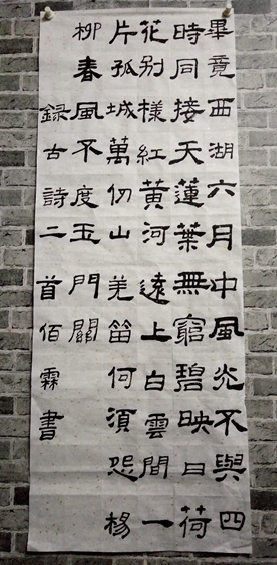 畢竟西湖六月中風光不與四
時同接天蓮葉無窮碧映日荷
花別樣紅黃河遠上白雲間一
片孤城萬仞山羌笛何須怨楊
柳春風不度玉門關
録古詩二首佰霖書